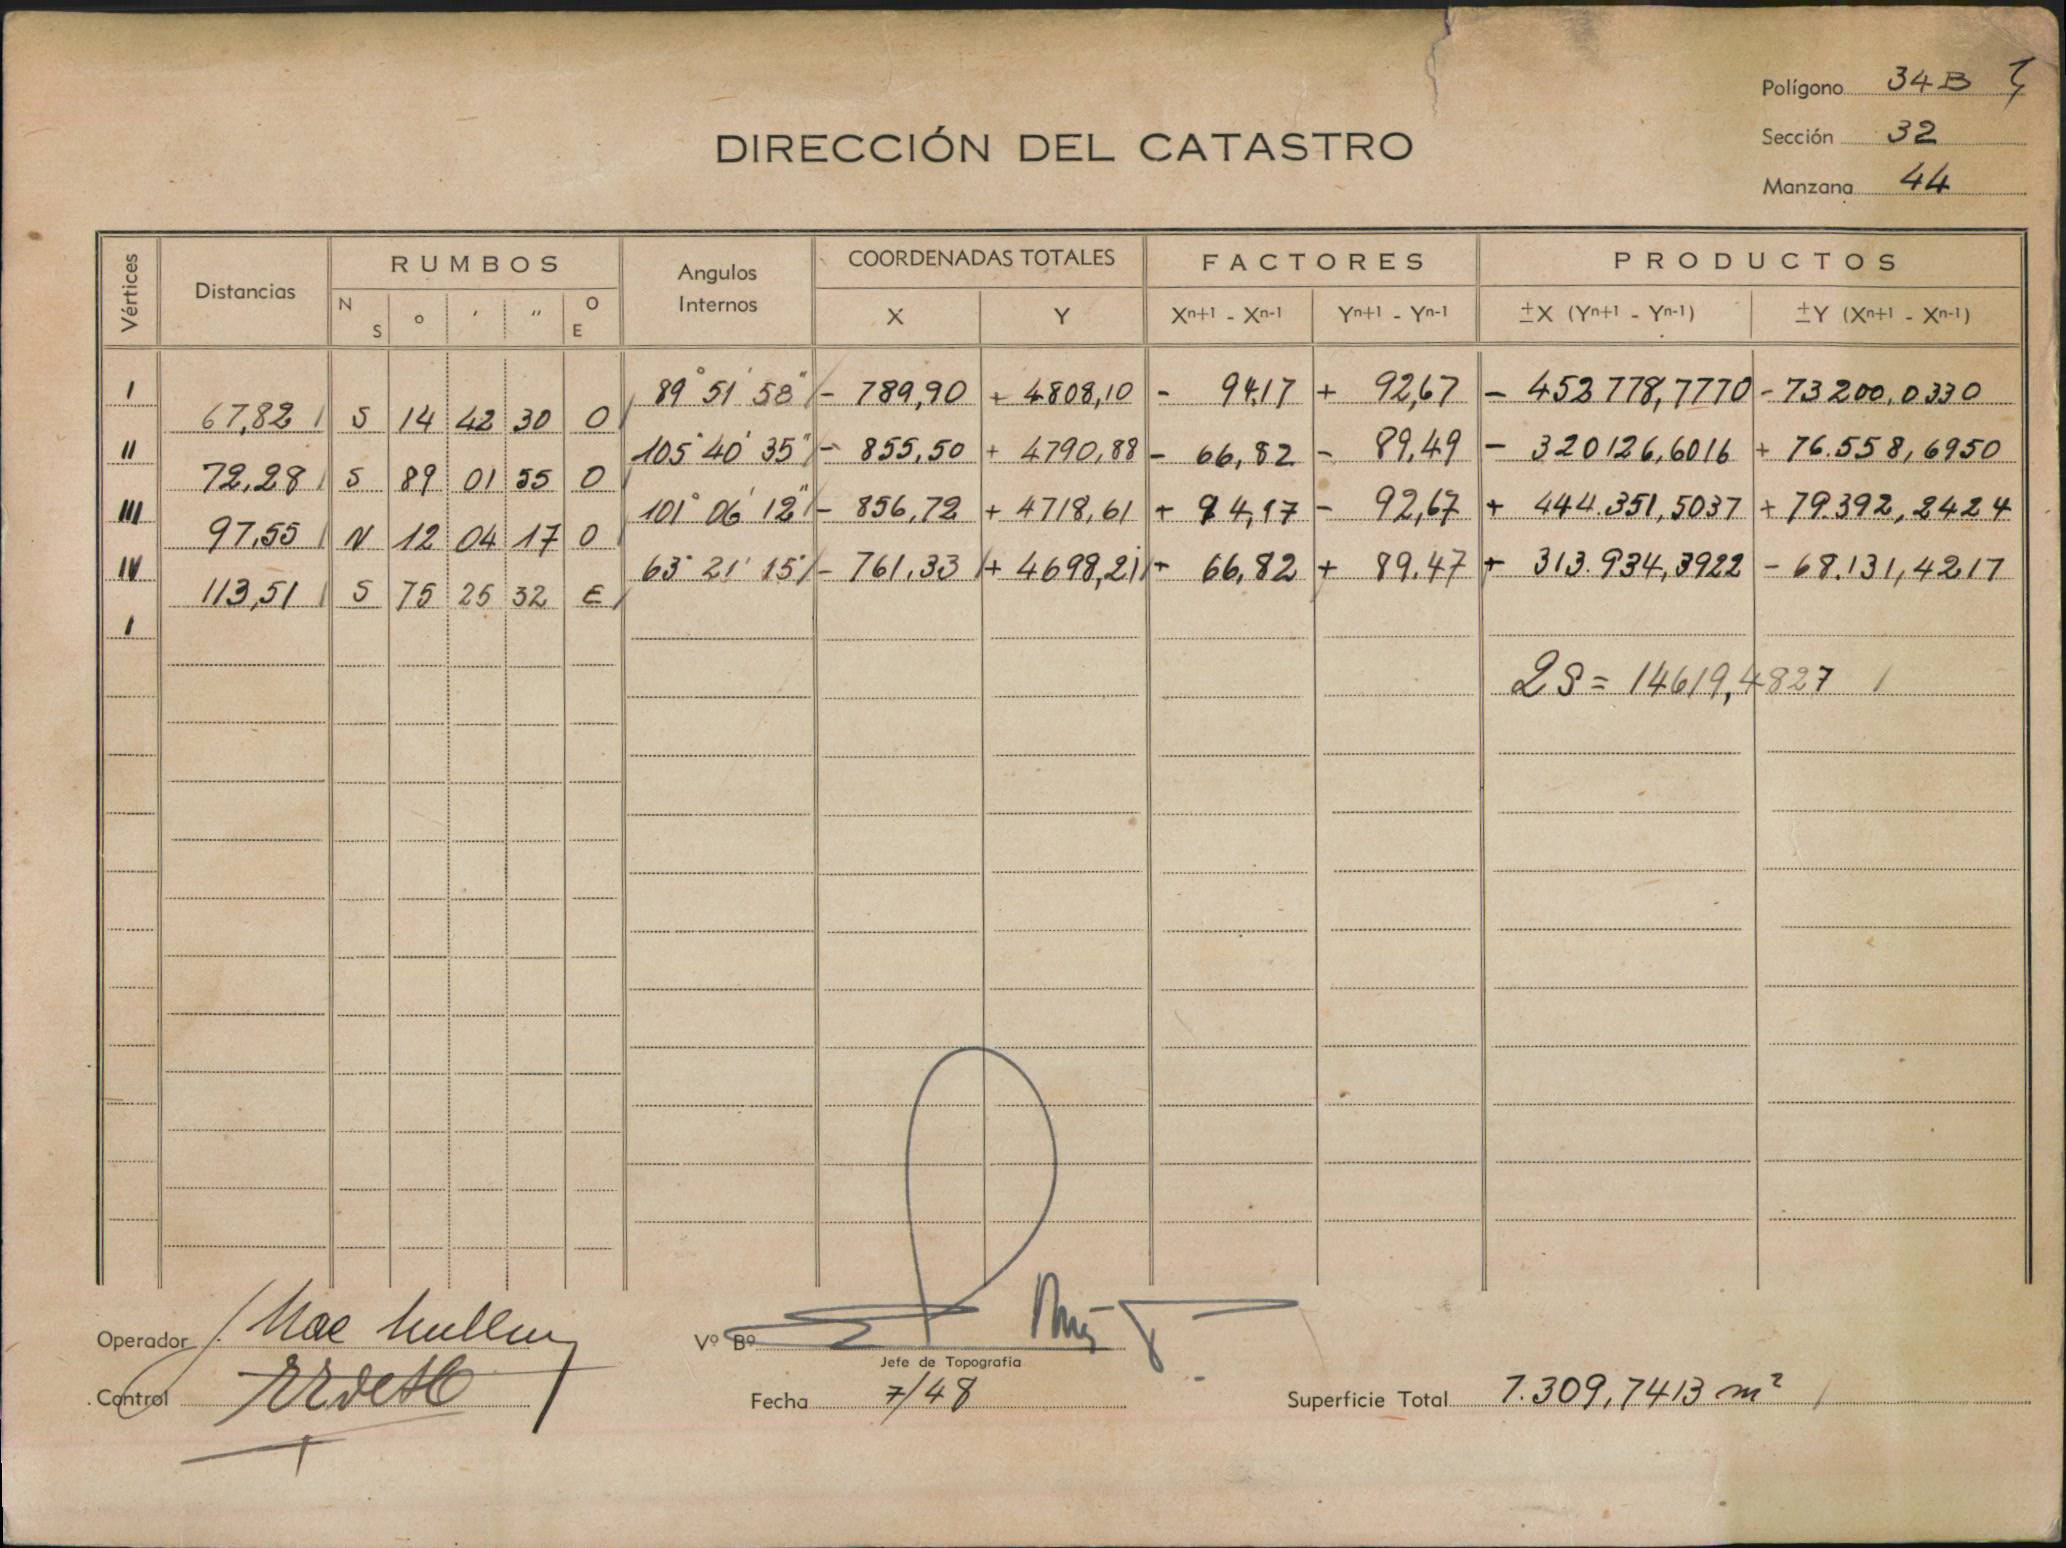 Polígono 34B
Sección 32
Manzana 44
DIRECCIÓN DEL CATASTRO
Vértices Distancias RUMBOS Angulos Internos COORDENADAS TOTALES FACTORES PRODUCTOS
N S ° ' " O E X Y Xn+1 - Xn-1 Yn+1 - Yn-1 ±X (Yn+1 - Yn-1) ±Y (Xn+1 - Xn-1)
I 89° 51' 58" - 789,90 + 4808,10 - 94,17 + 92,67 - 452778,7770 - 73200,0330
67,82 S 14 42 30 O
II 105° 40' 35" - 855,50 + 4790,88 - 66,82 - 89,49 - 320126,6016 + 76.558,6950
72,28 S 89 01 55 O
III 101° 06' 12" - 856,72 + 4718,61 + 94,17 - 92,67 + 444.351,5037 + 79.392,2424
97,55 N 12 04 17 O
IV 63° 21' 15" - 761,33 + 4698,21 + 66,82 + 89,47 + 313.934,3922 - 68.131,4217
113,51 S 75 25 32 E
I
2S = 14619,4827
Operador Mac
Vº Bº
Jefe de Topografía
Control
Fecha 7/48
Superficie Total 7.309,7413 m²